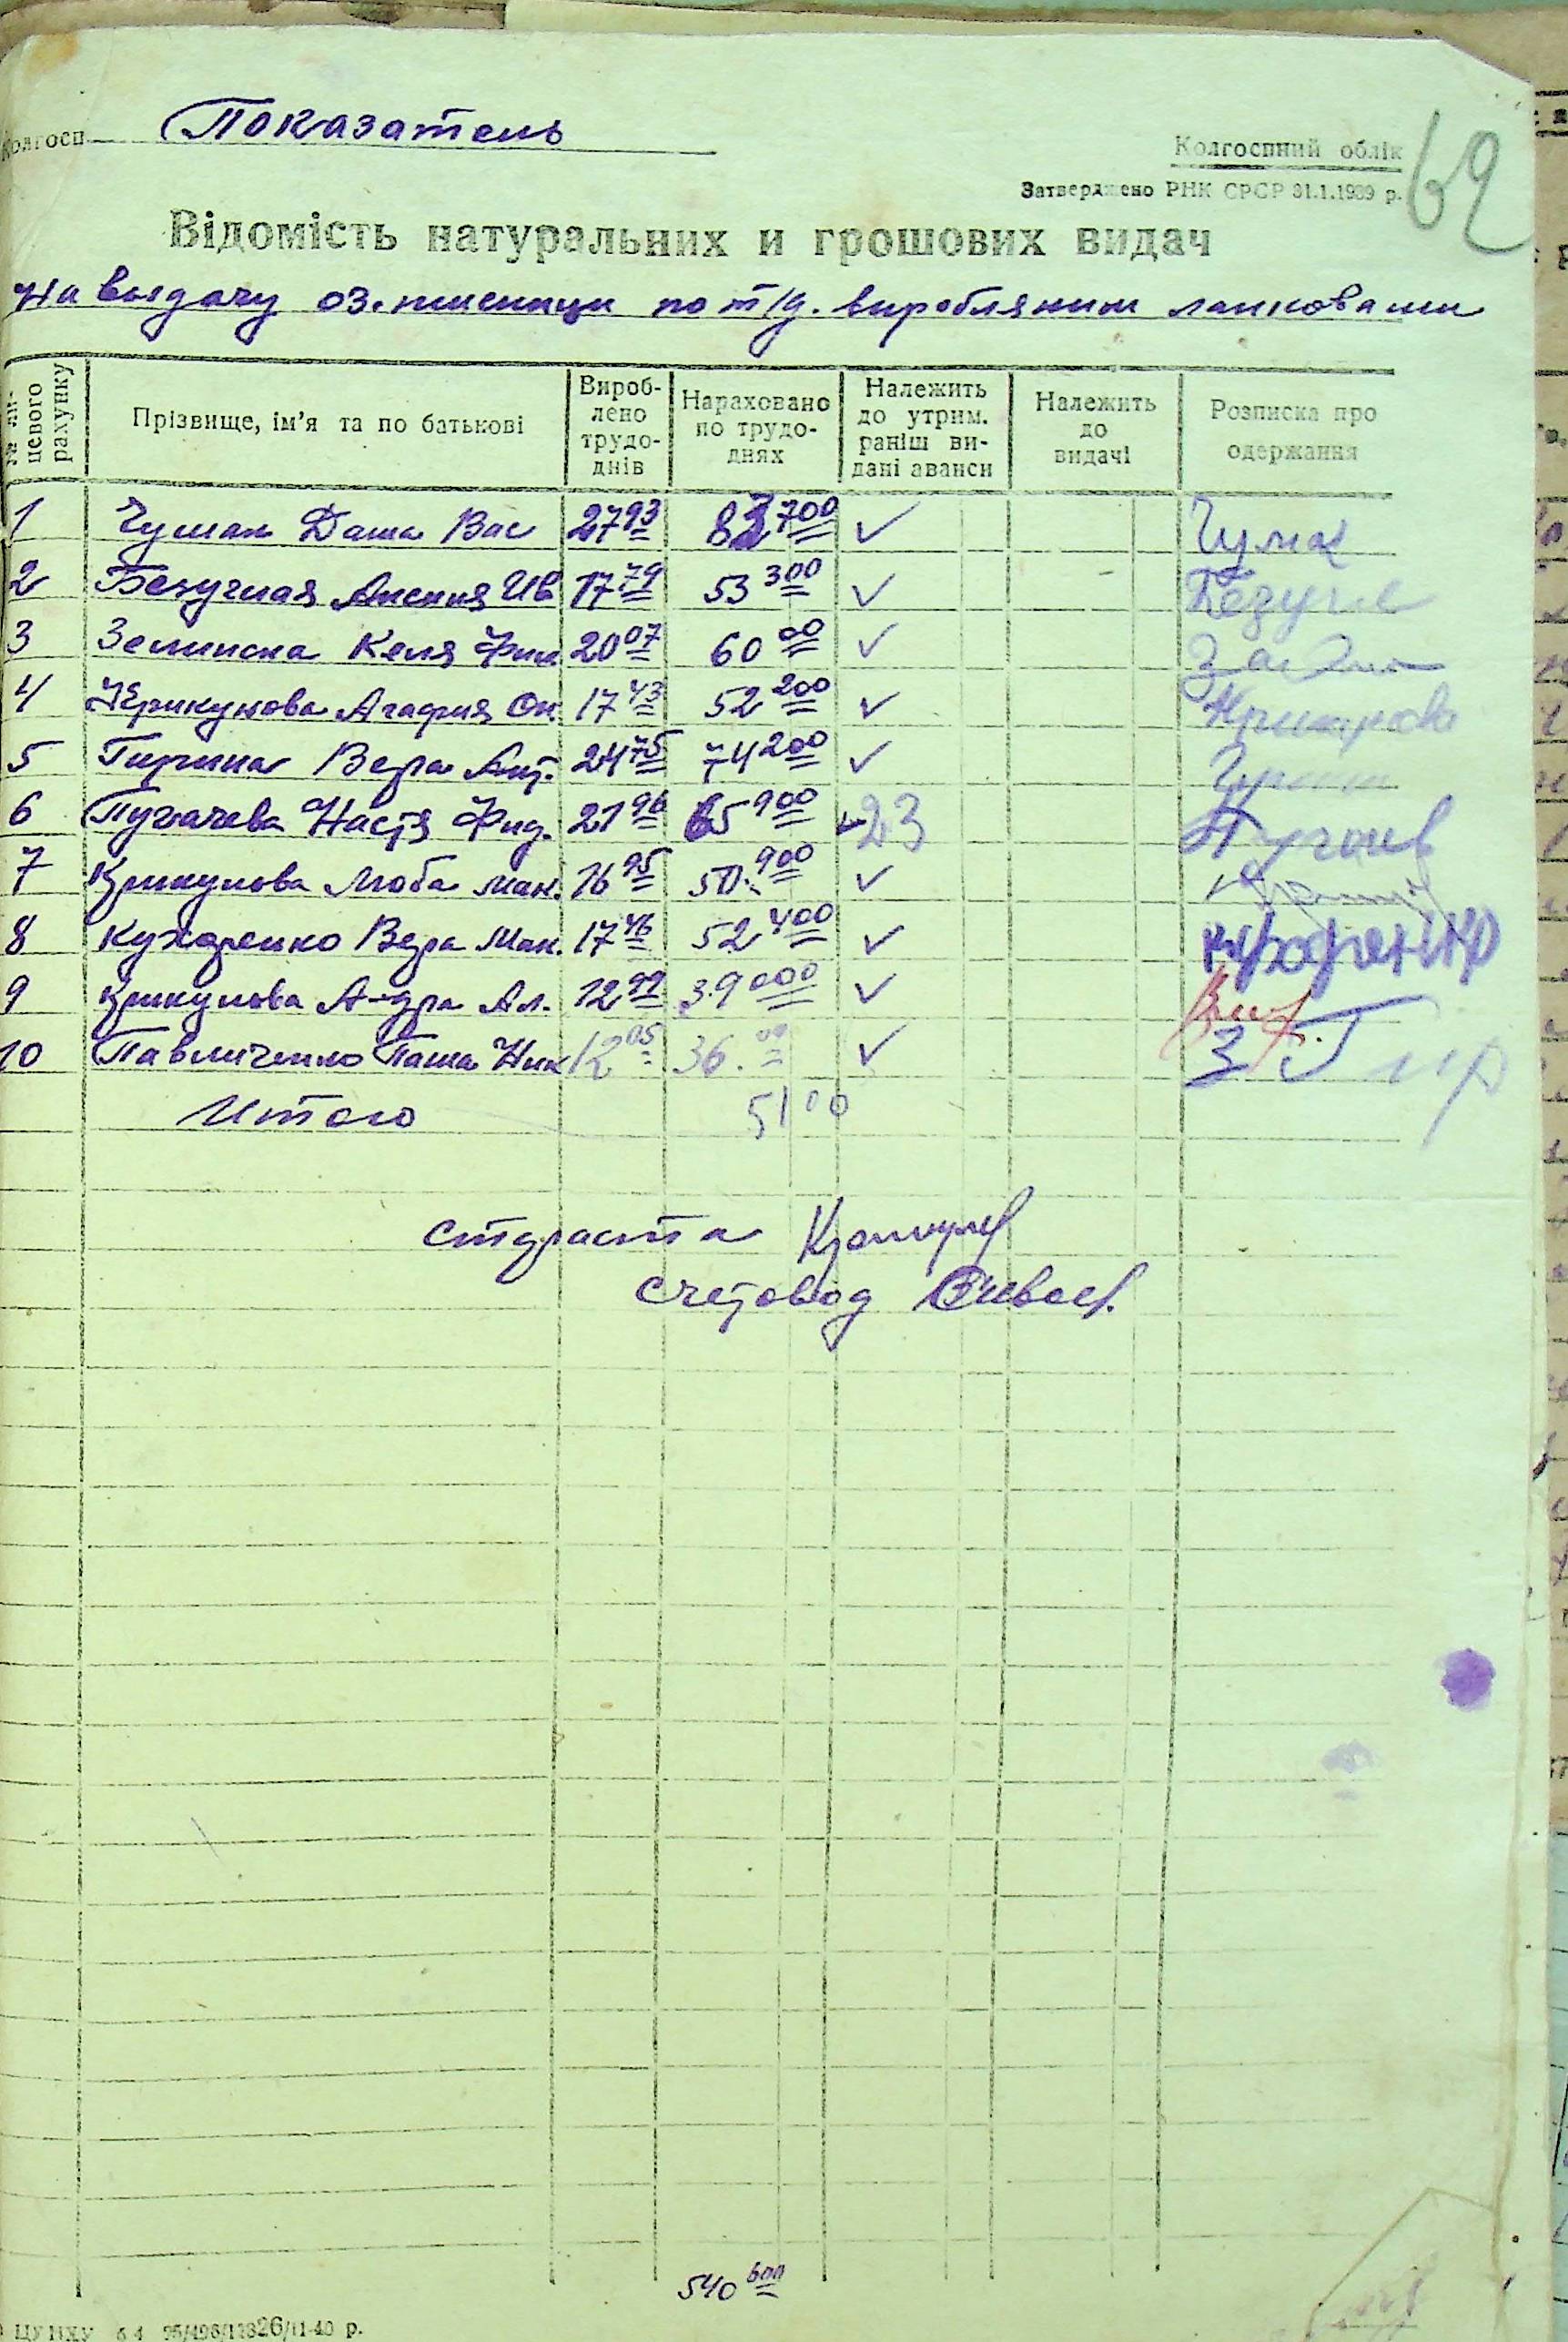 Колгосп Показатель
Колгоспний облік
62
Затверджено РНК СРСР 31.1.1939 р.
Відомість натуральних и грошових видач
на выдачу оз. пшеници по т/д. виробляним ланковами
№ ли-цевого рахунку | Прізвище, ім'я та по батькові | Вироб-лено трудо-днів | Нараховано по трудо-днях | Належить до утрим. раніш ви-дані аванси | Належить до видачі | Розписка про одержання
1 Чумак Даша Вас 27 93 83 700 ✓ Чумак
2 Безуглая Аксения Ив 17 79 53 300 ✓ Безугле
3 Зелинска Келя Фил 20 07 60 00 ✓
4 Крикунова Агафия Оп. 17 43 52 200 ✓ Крикунова
5 Гирина Вера Ант. 24 75 74 200 ✓
6 Пугачева Настя Фид. 21 96 65 900 ✓ 23 Пугачев
7 Крикунова Люба Мак. 16 95 50. 900 ✓
8 Кухаренко Вера Мак. 17 46 52 400 ✓
9 Крикунова А-дра Ал. 12 99 39 000 ✓
10 Павличенко Паша Ник 12 05 36. 00 ✓
Итого 51 00
староста
Счетовод
540 600
ЦУНХУ